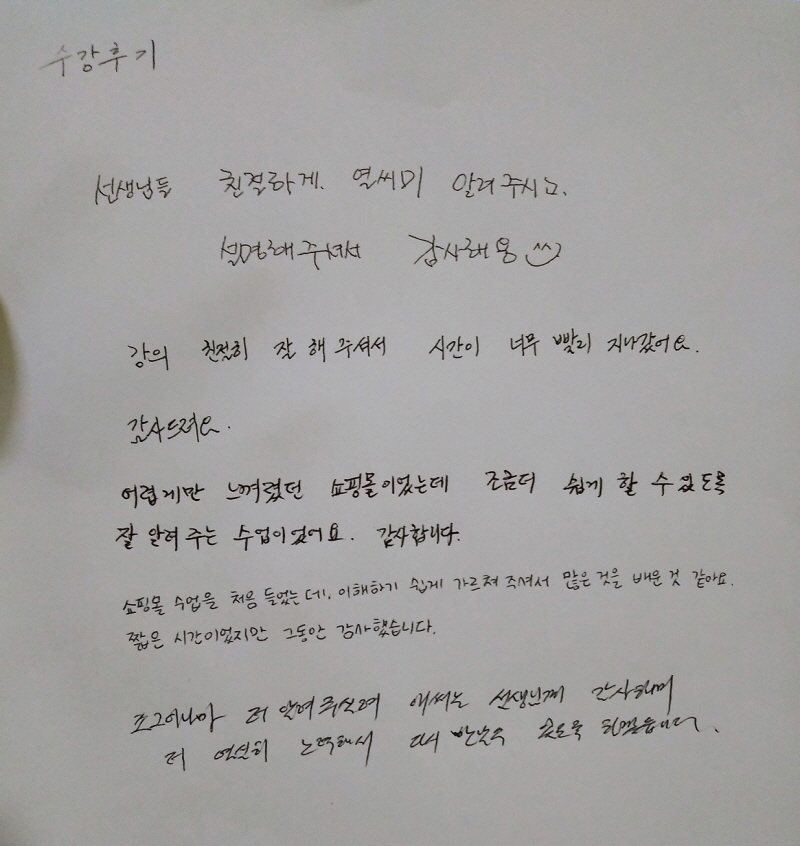 수강후기
선생님들 친절하게. 열씨미 알려주시고.
설명해주셔서 감사해용 ^^
강의 친절히 잘 해 주셔서 시간이 너무 빨리 지나갔어요.
감사드려요.
어렵게만 느껴렸던 쇼핑몰이었는데 조금더 쉽게 할 수 있도록
잘 알려 주는 수업이었어요. 감사합니다.
쇼핑몰 수업을 처음 들었는데, 이해하기 쉽게 가르쳐 주셔서 많은것을 배운것 같아요.
짧은 시간이었지만 그동안 감사했습니다.
조그이나마 더 알려주시려 애써는 선생님께 감사하며
더 열심히 노력해서